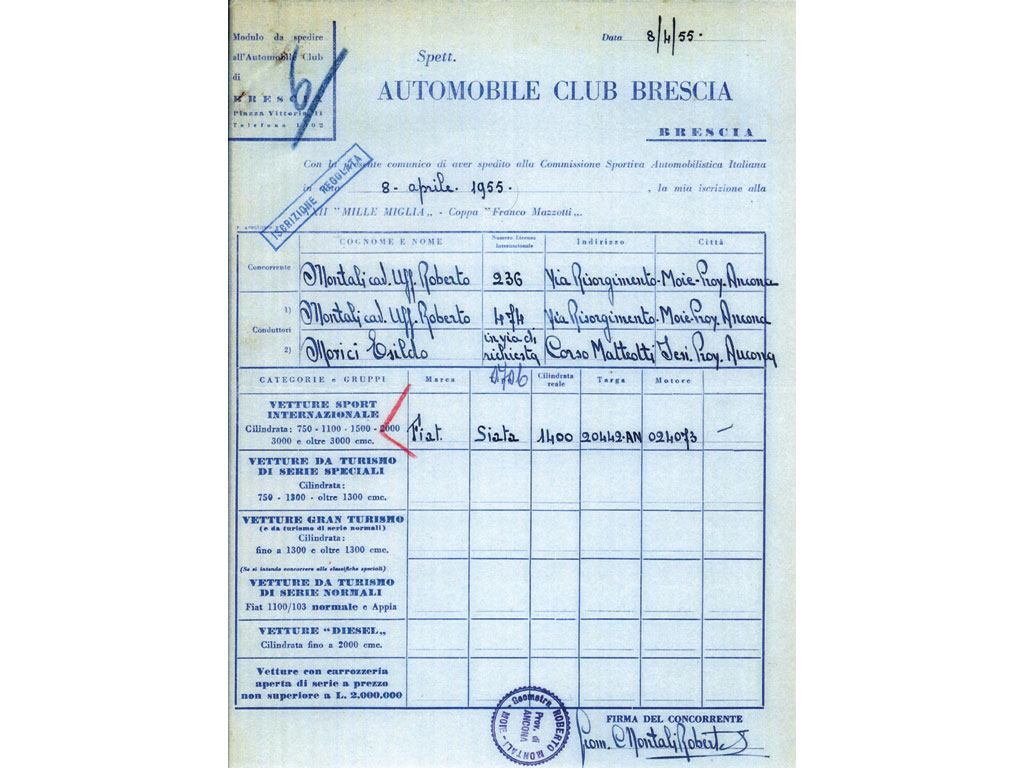 Modulo da spedire
all'Automobile Club
di
BRESCIA
Piazza Vittoria
Telefono
6
Data 8/4/55.
Spett.
AUTOMOBILE CLUB BRESCIA
BRESCIA
Con la presente comunico di aver spedito alla Commissione Sportiva Automobilistica Italiana
in 8 - aprile. 1955. , la mia iscrizione alla
XXII "MILLE MIGLIA„ - Coppa "Franco Mazzotti„.
ISCRIZIONE REGOLATA
COGNOME E NOME Numero Licenza Internazionale Indirizzo Città
Concorrente Montali cav. Uff. Roberto 236 Via Risorgimento - Moie - Prov. Ancona
Conduttori
1) Montali cav. Uff. Roberto 474 Via Risorgimento - Moie - Prov. Ancona
2) Morici Esildo in via di richiesta Corso Matteotti Jesi. Prov. Ancona
CATEGORIE e GRUPPI Marca Cilindrata reale Targa Motore
VETTURE SPORT
INTERNAZIONALE
Cilindrata: 750 - 1100 - 1500 - 2000
3000 e oltre 3000 cmc.
Fiat. Siata 1400 20442-AN 024073 -
VETTURE DA TURISMO
DI SERIE SPECIALI
Cilindrata:
750 - 1300 - oltre 1300 cmc.
VETTURE GRAN TURISMO
(e da turismo di serie normali)
Cilindrata:
fino a 1300 e oltre 1300 cmc.
(Se si intende concorrere alle classifiche speciali)
VETTURE DA TURISMO
DI SERIE NORMALI
Fiat 1100/103 normale e Appia
VETTURE "DIESEL„
Cilindrata fino a 2000 cmc.
Vetture con carrozzeria
aperta di serie a prezzo
non superiore a L. 2.000.000
Geometra ROBERTO MONTALI - MOIE -
Prov. di
ANCONA
FIRMA DEL CONCORRENTE
Geom. Montali Roberto